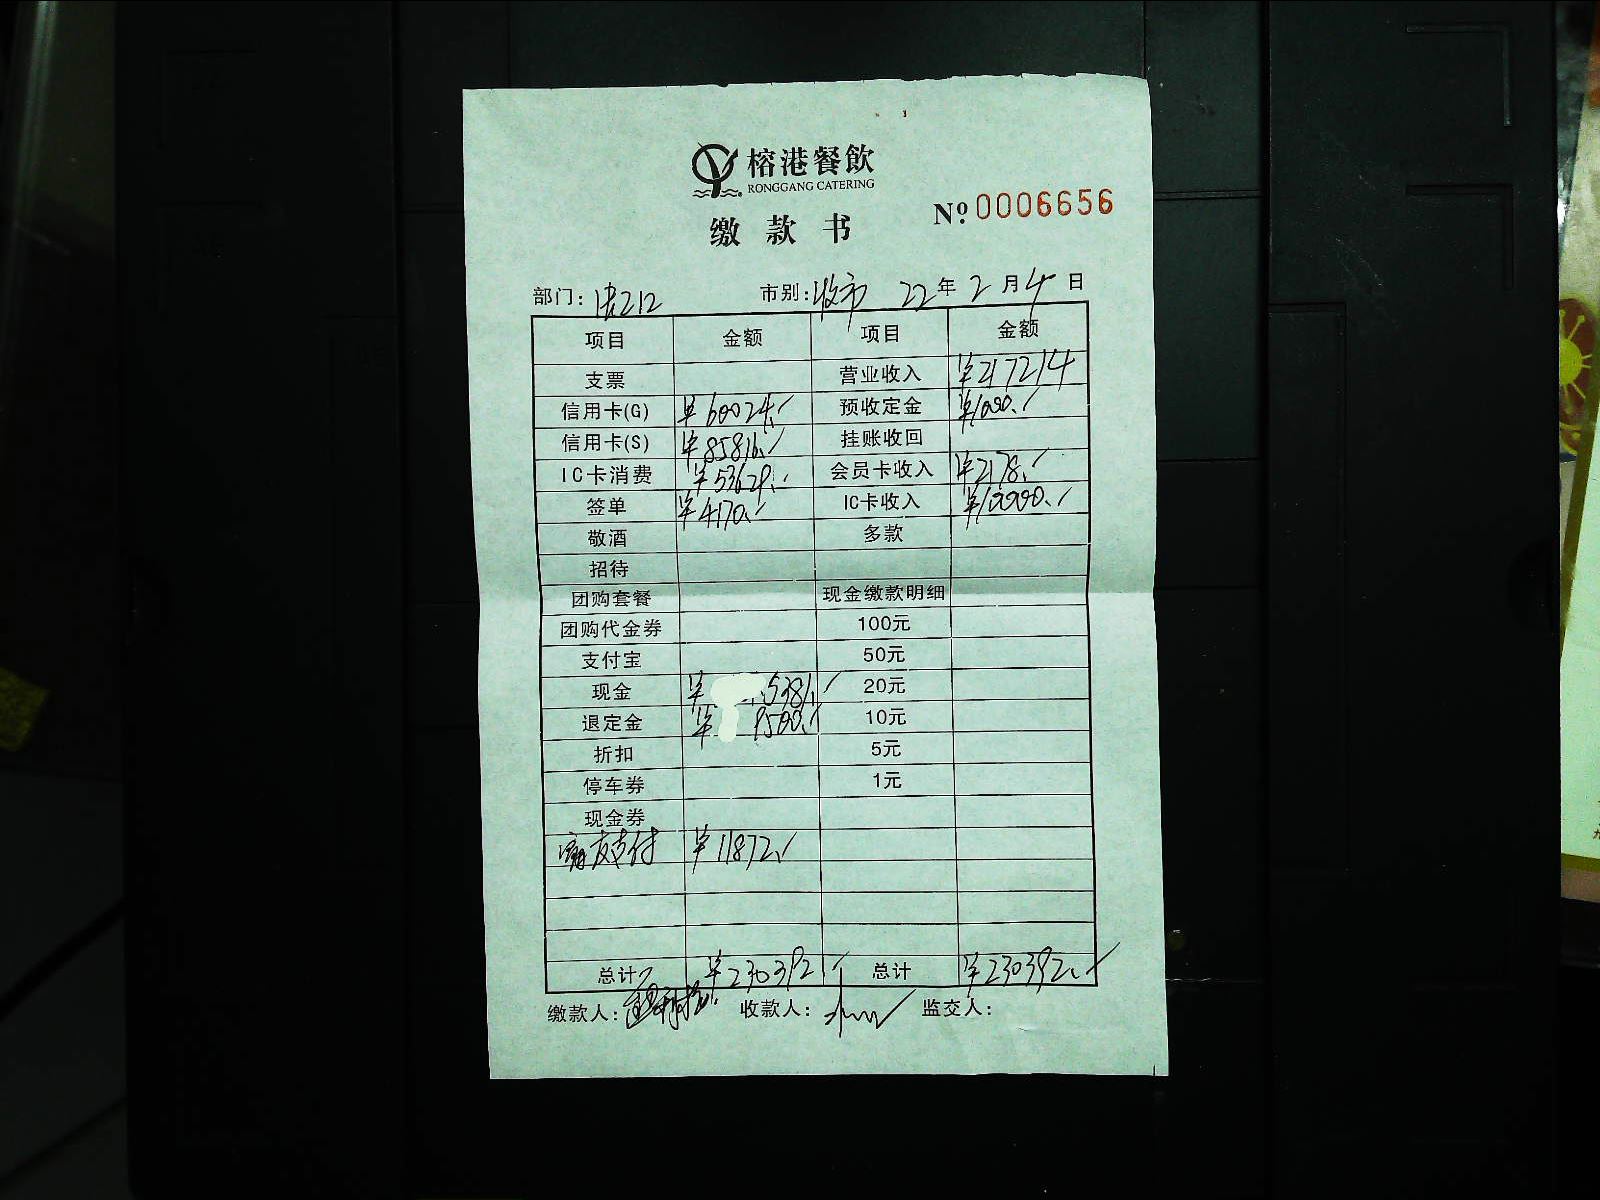 榕港餐飲
RONGGANG CATERING
缴款书
№ 0006656
部门: 市别: 收市 22年2月4日
项目 金额 项目 金额
支票 营业收入 ¥217214
信用卡(G) ¥60024. 预收定金 ¥1000.
信用卡(S) ¥85816. 挂账收回
IC卡消费 ¥53629. 会员卡收入 ¥2178.
签单 ¥4170. IC卡收入 ¥10000.
敬酒 多款
招待
团购套餐 现金缴款明细
团购代金券 100元
支付宝 50元
现金 ¥5381. 20元
退定金 ¥9500. 10元
折扣 5元
停车券 1元
现金券
支付 ¥11872.
总计 ¥230392 总计 ¥230392.
缴款人: 收款人: 监交人: